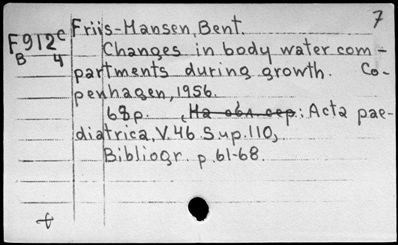 7
F912c Friis-Hansen, Bent.
B 4 Changes in body water com-
partments during growth. Co-
penhagen, 1956.
68p. , На обл. сер.: Acta pae-
diatrica, V. 46 Sup. 110,
Bibliogr. p. 61-68.